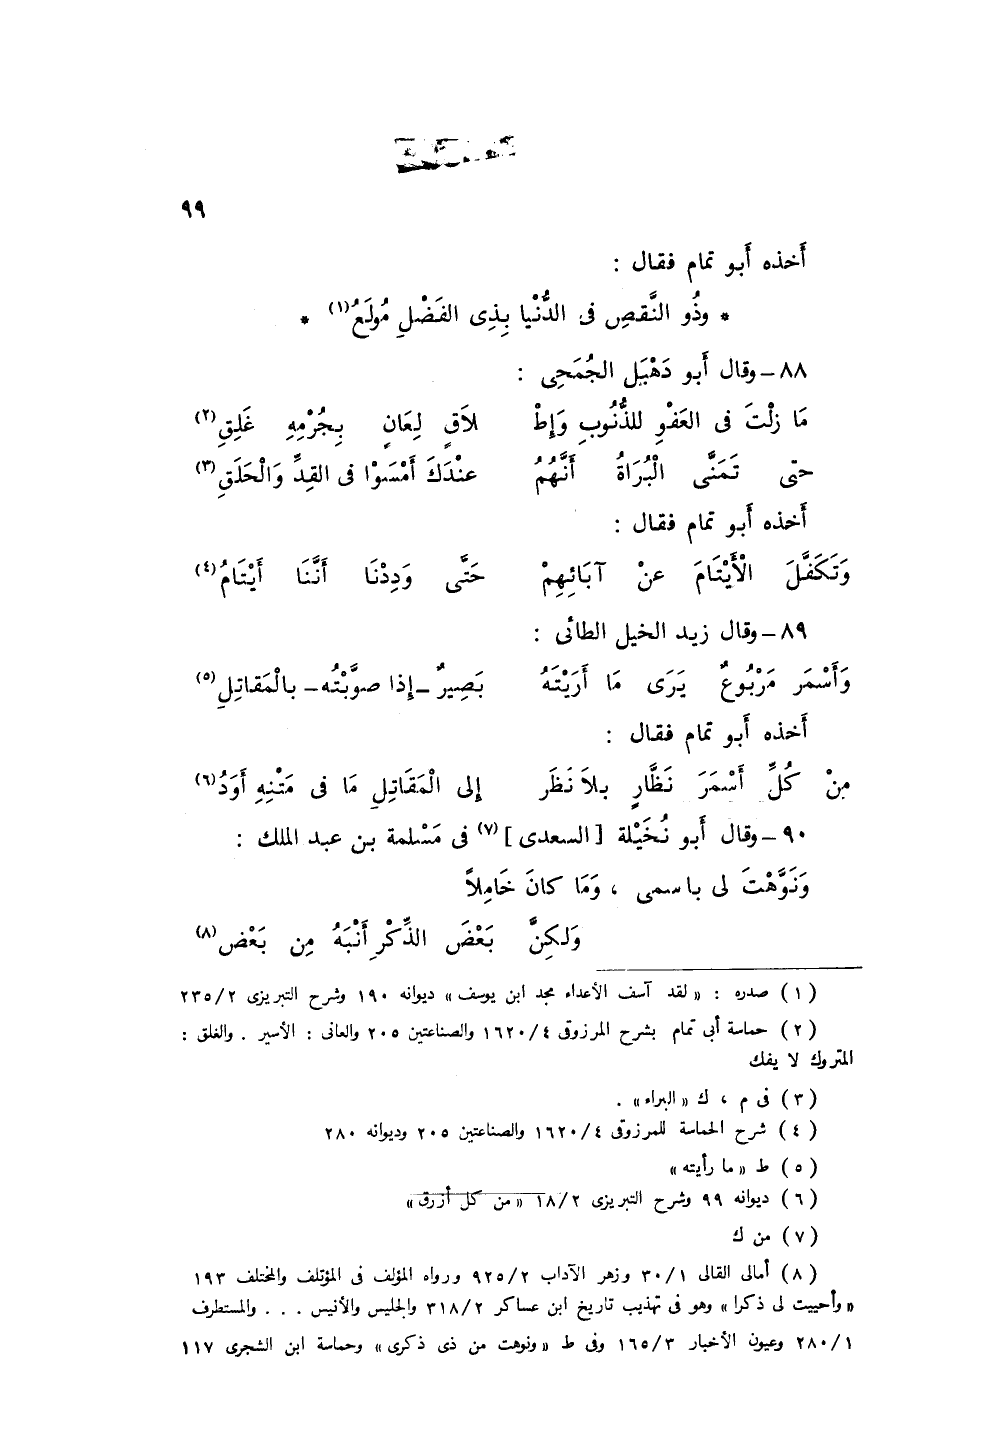 ٩٩
أَخذه أَبو تمام فقال :
* وذُو النَّقصِ فى الدُّنْيا بِذِى الفَضْلِ مُولَعُ(١) *
٨٨ – وقال أَبو دَهْبَل الجُمَحِى :
مَا زلْتَ فى العَفْوِ للذُّنُوبِ وَإِطْ لاَقٍ لِعَانٍ بِجُرْمِهِ غَلِقِ(٢)
حتّى تَمَنَّى الْبُرَاةُ أَنَّهُمُ عنْدَكَ أَمْسَوْا فى القِدِّ وَالْحَلَقِ(٣)
أَخذه أَبو تمام فقال :
وَتَكَفَّلَ الْأَيْتَامَ عنْ آبَائِهِمْ حَتَّى وَدِدْنَا أَنَّنَا أَيْتَامُ(٤)
٨٩ – وقال زيد الخيل الطائى :
وَأَسْمَر مَرْبُوعٌ يَرَى مَا أَرَيْتَهُ بَصِيرٌ – إِذا صوَّبْتُه – بالْمَقاتِلِ(٥)
أَخذه أَبو تمام فقال :
مِنْ كُلِّ أَسْمَرَ نَظَّارٍ بلاَ نَظَر إلى الْمَقَاتِلِ مَا فى مَتْنِهِ أَوَدُ(٦)
٩٠ – وقال أَبو نُخَيْلة [ السعدى ](٧) فى مَسْلمة بن عبد الملك :
وَنَوَّهْتَ لى باسمى ، وَمَا كانَ خَامِلاً
وَلكِنَّ بَعْضَ الذِّكْرِ أَنْبَهُ مِن بَعْض(٨)
( ١ ) صدره : « لقد آسف الأعداء مجد ابن يوسف » ديوانه ١٩٠ وشرح التبريزى ٢/٢٣٥
( ٢ ) حماسة أبى تمام بشرح المرزوقى ٤/١٦٢٠ والصناعتين ٢٠٥ والعانى : الأسير . والغلق :
المتروك لا يفك
( ٣ ) فى م ، ك « البراء » .
( ٤ ) شرح الحماسة للمرزوقى ٤/١٦٢٠ والصناعتين ٢٠٥ وديوانه ٢٨٠
( ٥ ) ط « ما رأيته »
( ٦ ) ديوانه ٩٩ وشرح التبريزى ٢/١٨ « من كل أزرق »
( ٧ ) من ك
( ٨ ) أمالى القالى ١/٣٠ وزهر الآداب ٢/٩٢٥ ورواه المؤلف فى المؤتلف والمختلف ١٩٣
« وأحييت لى ذكرا » وهو فى تهذيب تاريخ ابن عساكر ٢/٣١٨ والجليس والأنيس . . . والمستطرف
١/٢٨٠ وعيون الأخبار ٣/١٦٥ وفى ط « ونوهت من ذى ذكرى » وحماسة ابن الشجرى ١١٧